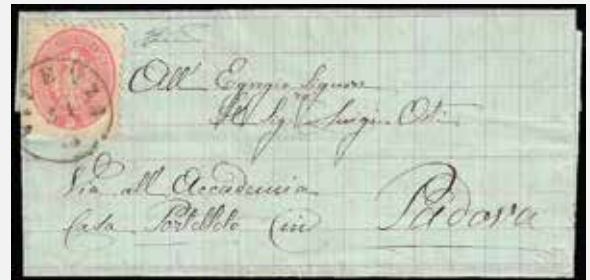 All' Egregio Signore
Il Sig. Luigi Osti
Via all' Accademia
Casa in Padova